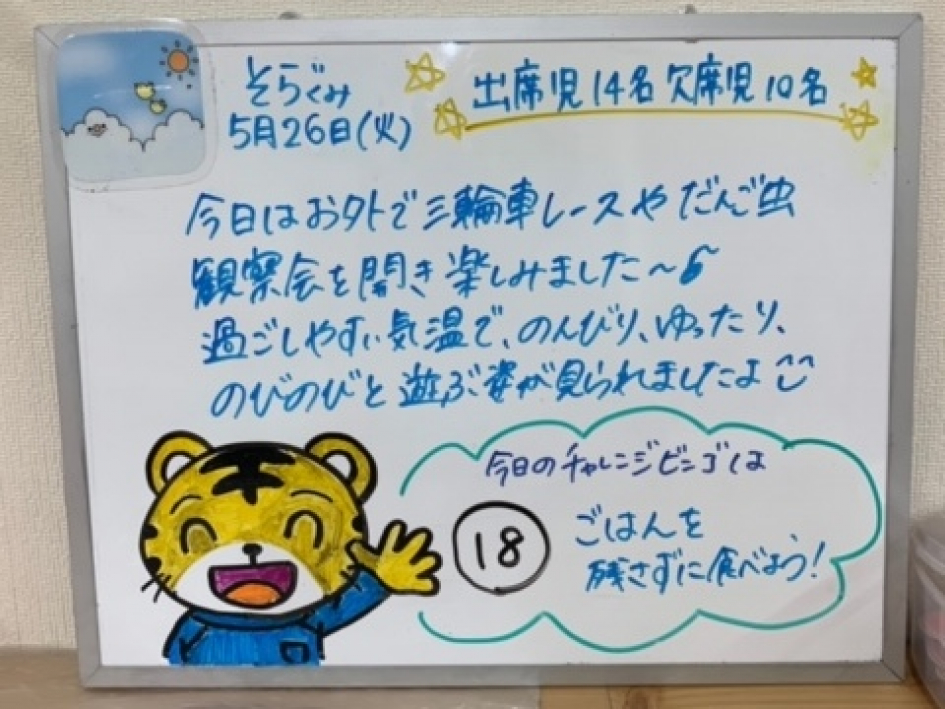 そらぐみ
5月26日(火)
出席児14名 欠席児10名
今日はお外で三輪車レースやだんご虫
観察会を開き楽しみました～
過ごしやすい気温で、のんびり、ゆったり、
のびのびと遊ぶ姿が見られましたよ
今日のチャレンジビンゴは
18
ごはんを
残さずに食べよう!